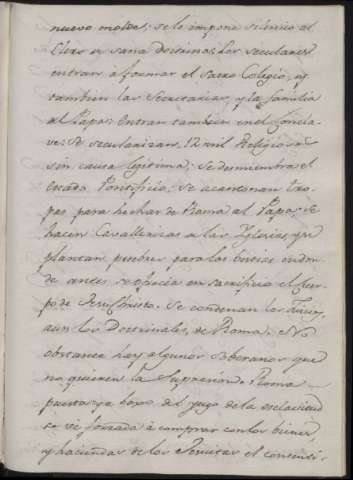 nuevo molde; se le impone silencio al
Clero en sana doctrina; los seculares
entran à formar el Sacro Colegio, y
tambien las Secretarias, y la familia
al Papa: entran tambien en el Concla-
ve: Se secularizan 12 mil Religiosos
sin causa legitima; se desmembra el
Estado Pontificio; se acantonan tro-
pas para hechar de Roma al Papa; se
hacen Cavallerizas a las Yglesias, y se
plantan pesebres para las bestias en don-
de antes se ofrecia en sacrificio el Cuer-
po de Jesu Christo. Se condenan las
aun los Doctrinales, de Roma. No
obstante hay algunos Soberanos que
no quieren la Supresion. Roma
puesta ya bajo del yugo de la esclavitud
se ve forzada à comprar con los bienes,
y haciendas de los Jesuitas el consenti-